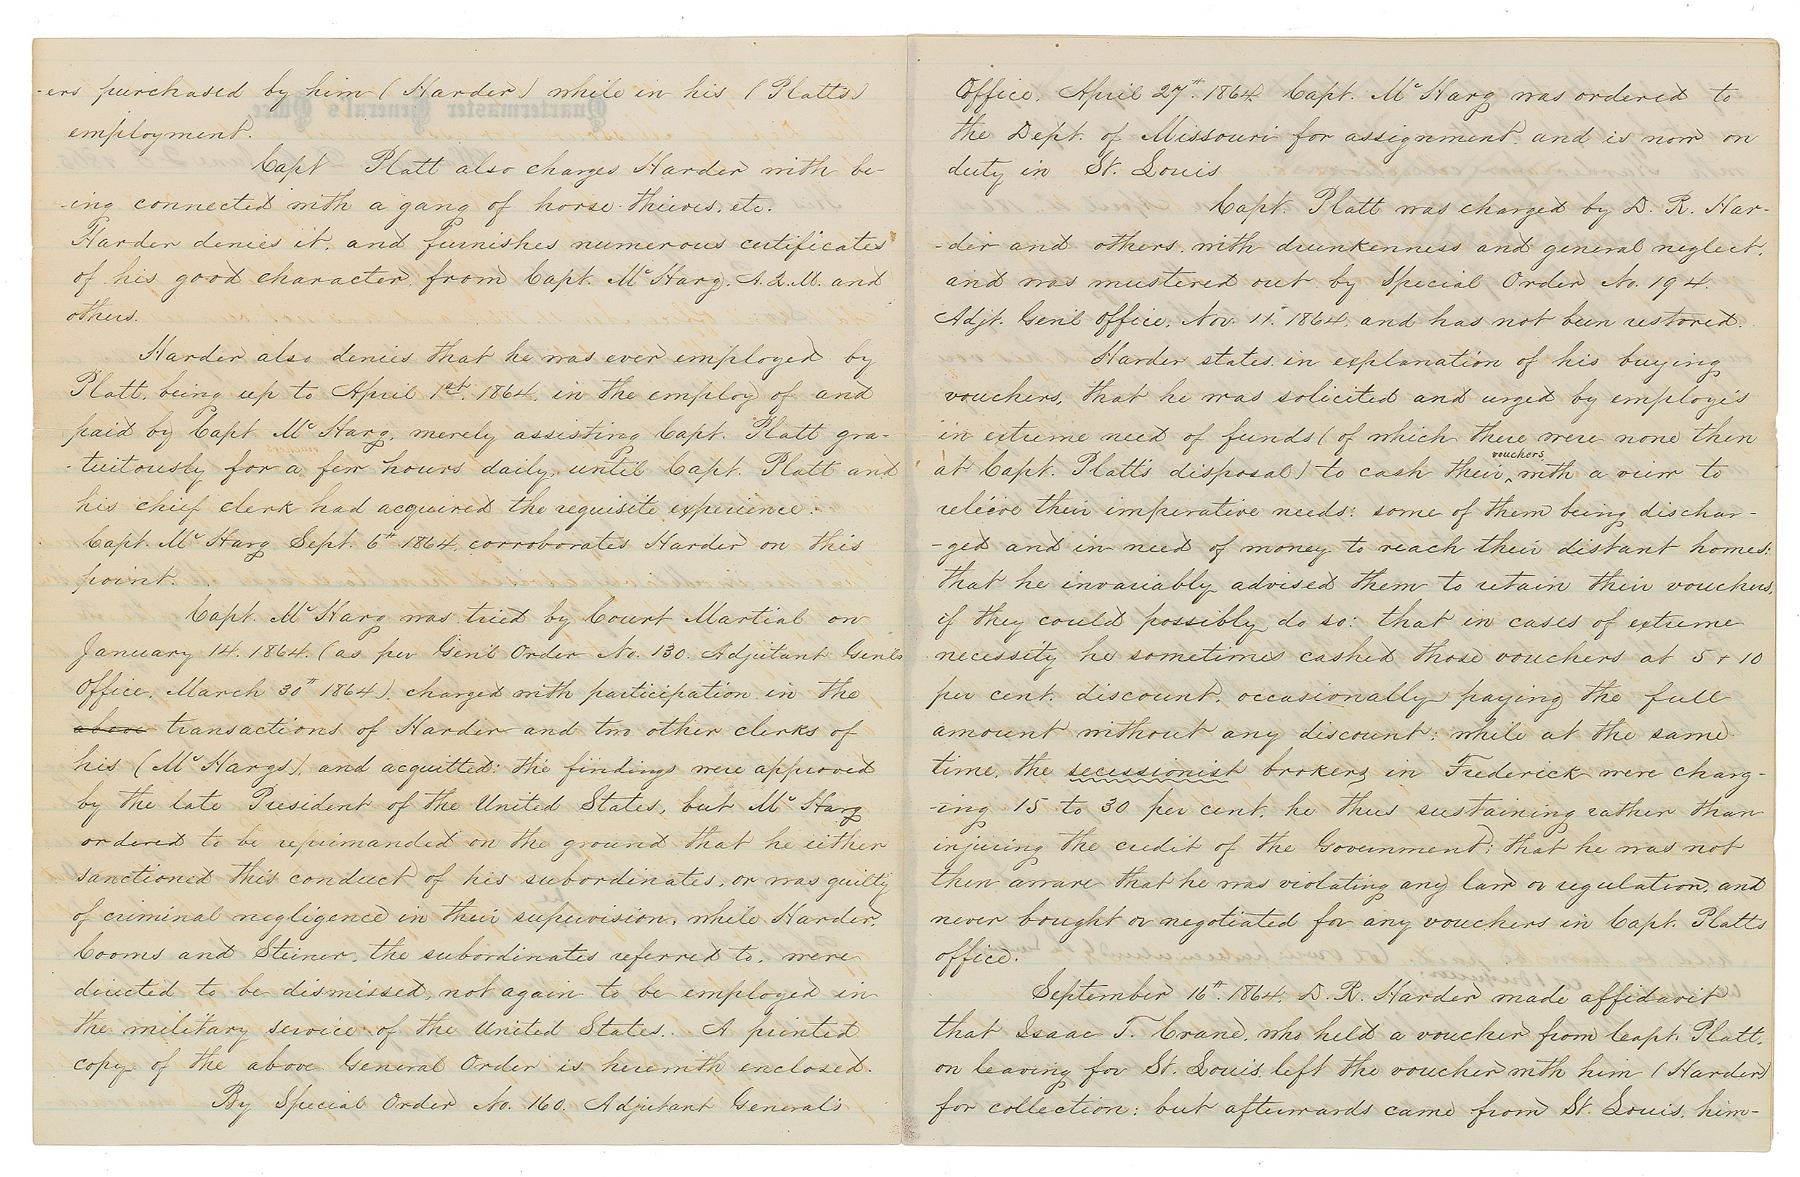 -ers purchased by him (Harder) while in his (Platt's)
employment.
Capt Platt also charges Harder with be-
-ing connected with a gang of horse-thieves, etc.
Harder denies it, and furnishes numerous certificates
of his good character from Capt. McHarg, A.Q.M. and
others.
Harder also denies that he was ever employed by
Platt, being up to April 1st, 1864, in the employ of and
paid by Capt McHarg, merely assisting Capt. Platt gra-
-tuitously for a few hours daily, until Capt. Platt and
his chief clerk had acquired the requisite experience.
Capt. McHarg Sept. 6th 1864, corroborates Harder on this
point.
Capt. McHarg was tried by Court Martial on
January 14. 1864. (as per Gen'l Order No. 130. Adjutant Genls
Office, March 30th 1864), charged with participation in the
above transactions of Harder and two other clerks of
his (McHargs), and acquitted: the findings were approved
by the late President of the United States, but McHarg
ordered to be reprimanded on the ground that he either
sanctioned this conduct of his subordinates, or was guilty
of criminal negligence in their supervision, while Harder,
Cooms and Steiner, the subordinates referred to, were
directed to be dismissed, not again to be employed in
the military service of the United States. A printed
copy of the above General Order is herewith enclosed.
By Special Order No. 160. Adjutant General's
Office, April 27th 1864. Capt. McHarg was ordered to
the Dept. of Missouri for assignment, and is now on
duty in St. Louis
Capt. Platt was charged by D. R. Har-
-der and others, with drunkenness and general neglect,
and was mustered out by Special Order No. 194.
Adjt. Genl Office, Nov. 11. 1864, and has not been restored.
Harder states in explanation of his buying
vouchers, that he was solicited and urged by employe's
in extreme need of funds (of which there were none then
at Capt. Platt's disposal) to cash their vouchers, with a view to
relieve their imperative needs: some of them being dischar-
-ged and in need of money to reach their distant homes:
that he invariably advised them to retain their vouchers,
if they could possibly do so: that in cases of extreme
necessity he sometimes cashed those vouchers at 5 & 10
per cent. discount, occasionally paying the full
amount without any discount; while at the same
time, the secessionist brokers in Frederick were charg-
-ing 15 to 30 per cent, he thus sustaining rather than
injuring the credit of the Government; that he was not
then aware that he was violating any law or regulation, and
never bought or negotiated for any vouchers in Capt. Platts
office.
September 16th 1864. D. R. Harder made affidavit
that Isaac T. Crane, who held a voucher from Capt. Platt,
on leaving for St. Louis, left the voucher with him (Harder)
for collection: but afterwards came from St. Louis, him-